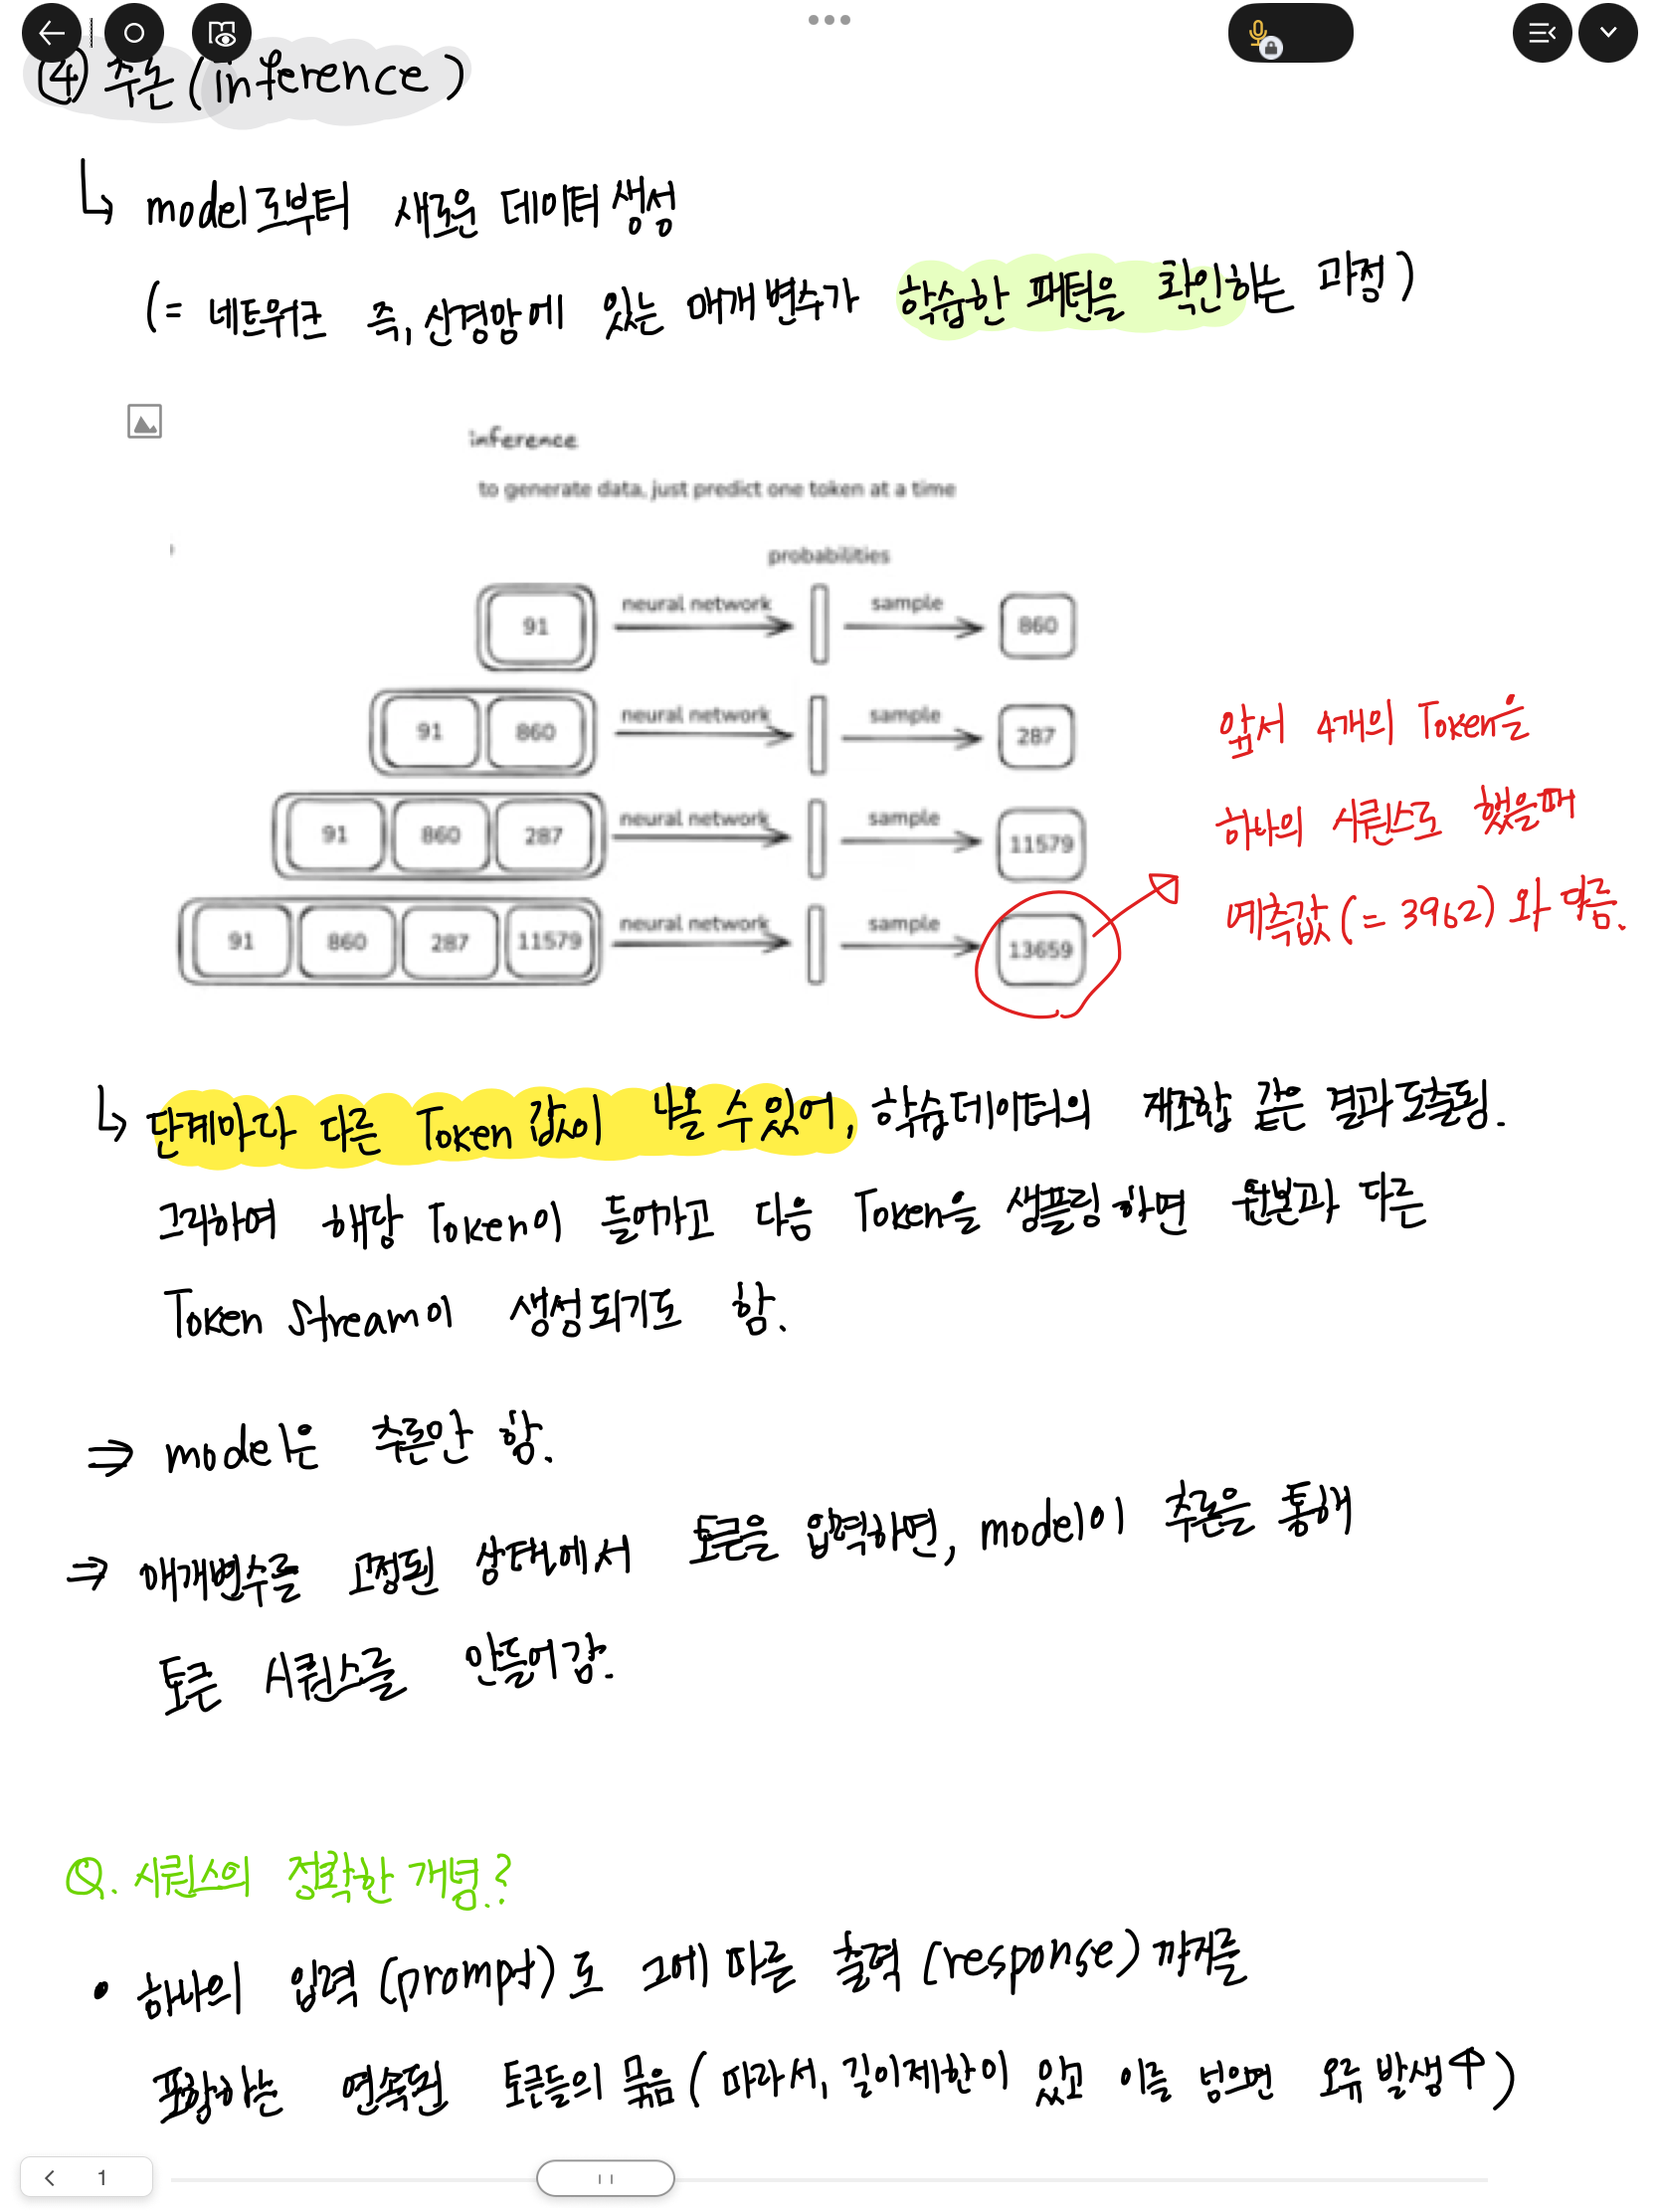 ④ 추론 (inference)
↳ model로부터 새로운 데이터 생성
(= 네트워크 즉, 신경망에 있는 매개변수가 학습한 패턴을 확인하는 과정)
inference
to generate data, just predict one token at a time
probabilities
91 neural network sample 860
91 860 neural network sample 287
91 860 287 neural network sample 11579
91 860 287 11579 neural network sample 13659
앞서 4개의 Token을
하나의 시퀀스로 했을때
예측값(= 3962) 와 다름.
↳ 단계마다 다른 Token 값이 나올 수 있어, 학습데이터의 재조합 같은 결과 도출됨.
그리하여 해당 Token이 들어가고 다음 Token을 샘플링 하면 원본과 다른
Token Stream이 생성되기도 함.
⇒ model은 추론만 함.
⇒ 매개변수를 고정된 상태에서 토큰을 입력하면, model이 추론을 통해
토큰 시퀀스를 만들어감.
Q. 시퀀스의 정확한 개념.?
• 하나의 입력 (prompt) 로 그에 따른 출력 (response) 까지를
포함하는 연속된 토큰들의 묶음 ( 따라서, 길이제한이 있고 이를 넘으면 오류 발생↑)
1